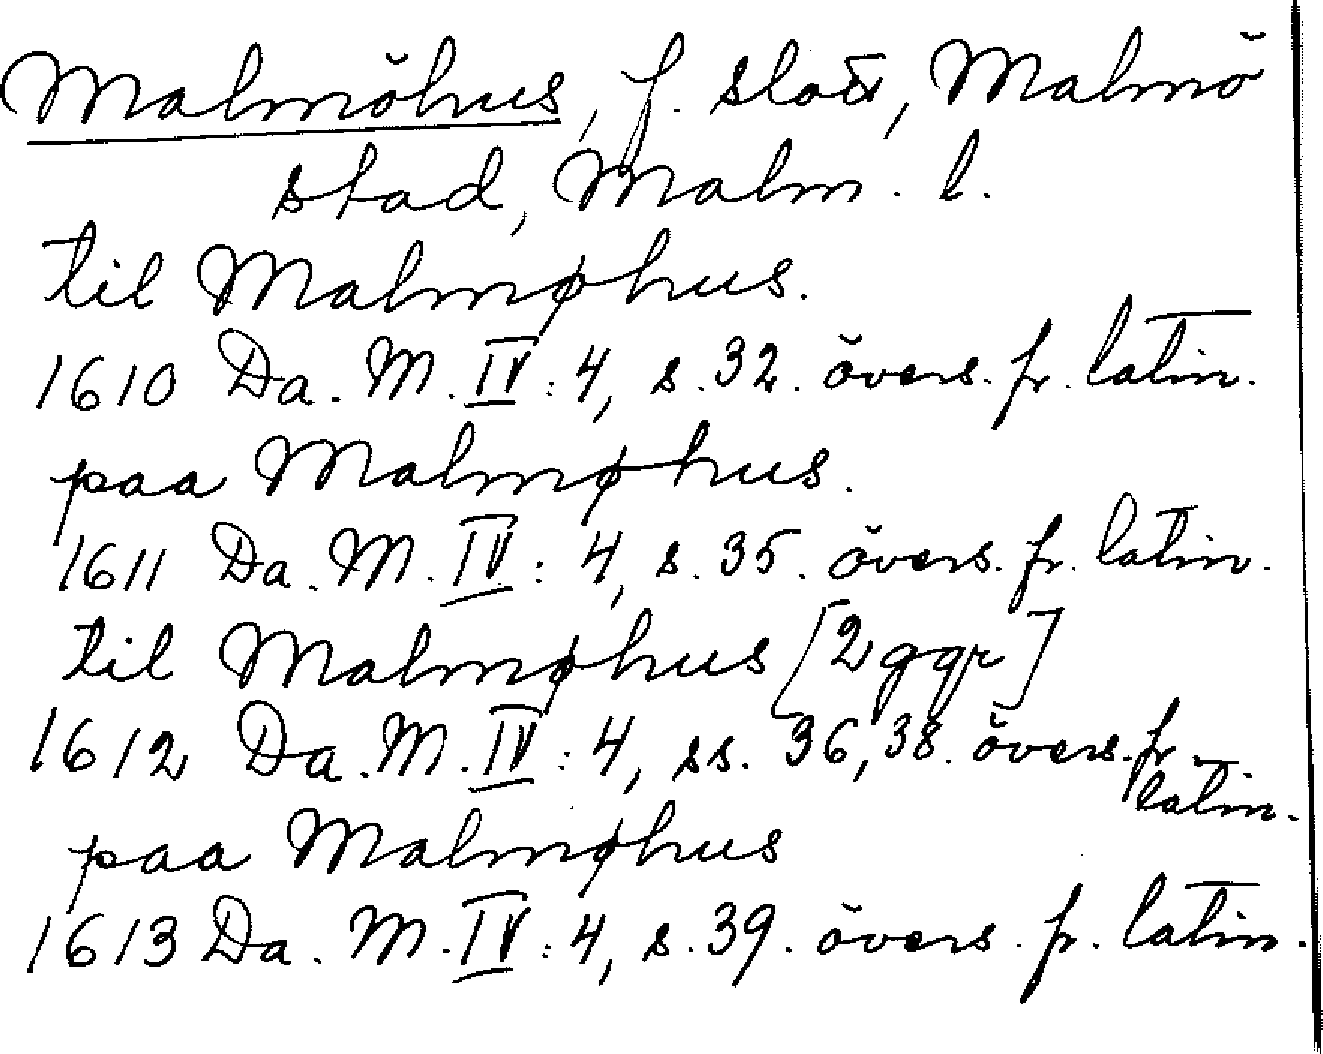 Malmöhus, f. slott, Malmö
stad, Malm. l.
til Malmøhus.
1610 Da. M. IV: 4, s. 32. övers. fr. latin.
paa Malmøhus.
1611 Da. M. IV: 4, s. 35. övers. fr. latin.
til Malmøhus [2 ggr]
1612 Da. M. IV: 4, ss. 36, 38. övers. fr.
latin.
paa Malmøhus
1613 Da. M. IV: 4, s. 39. övers. fr. latin.